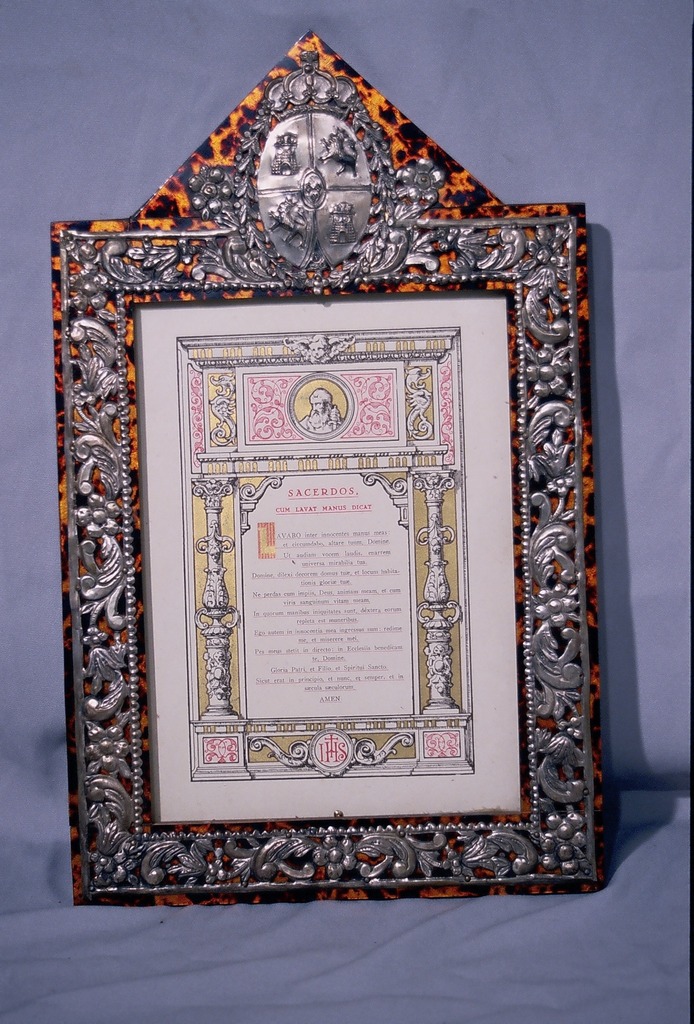 SACERDOS,
CUM LAVAT MANUS DICAT
LAVABO inter innocentes manus meas:
et circumdabo, altare tuum, Domine.
Ut audiam vocem laudis, enarrem
universa mirabilia tua.
Domine, dilexi decorem domus tuæ, et locum habita-
tionis gloriæ tuæ.
Ne perdas cum impiis, Deus, animam meam, et cum
viris sanguinum vitam meam.
In quorum manibus iniquitates sunt, dextera eorum
repleta est muneribus.
Ego autem in innocentia mea ingressus sum: redime
me, et miserere mei.
Pes meus stetit in directo: in Ecclesiis benedicam
te, Domine.
Gloria Patri, et Filio, et Spiritui Sancto.
Sicut erat in principio, et nunc, et semper, et in
sæcula sæculorum.
AMEN
IHS